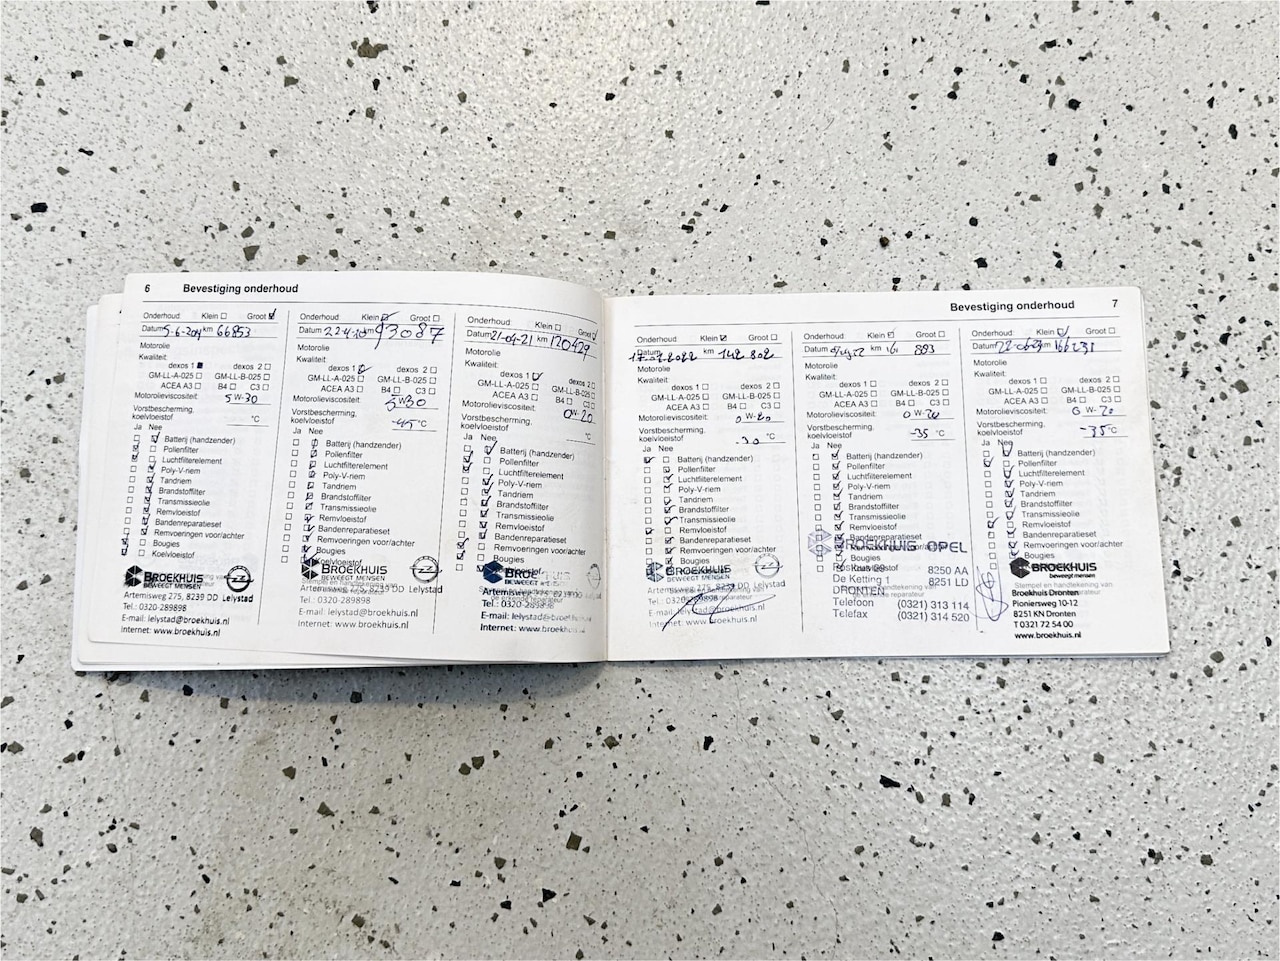 6 Bevestiging onderhoud
Onderhoud: Klein Groot
Datum 5-6-2019 km 66853
Motorolie
Kwaliteit:
dexos 1 dexos 2
GM-LL-A-025 GM-LL-B-025
ACEA A3 B4 C3
Motorolieviscositeit: 5 W-30
Vorstbescherming,
koelvloeistof °C
Ja Nee
Batterij (handzender)
Pollenfilter
Luchtfilterelement
Poly-V-riem
Tandriem
Brandstoffilter
Transmissieolie
Remvloeistof
Bandenreparatieset
Remvoeringen voor/achter
Bougies
Koelvloeistof
BROEKHUIS
BEWEEGT MENSEN
Artemisweg 275, 8239 DD Lelystad
Tel.: 0320-289898
E-mail: lelystad@broekhuis.nl
Internet: www.broekhuis.nl
Onderhoud: Klein Groot
Datum km 93087
Motorolie
Kwaliteit:
dexos 1 dexos 2
GM-LL-A-025 GM-LL-B-025
ACEA A3 B4 C3
Motorolieviscositeit: 5W30
Vorstbescherming,
koelvloeistof °C
Ja Nee
Batterij (handzender)
Pollenfilter
Luchtfilterelement
Poly-V-riem
Tandriem
Brandstoffilter
Transmissieolie
Remvloeistof
Bandenreparatieset
Remvoeringen voor/achter
Bougies
Koelvloeistof
BROEKHUIS
BEWEEGT MENSEN
Artemisweg 275, 8239 DD Lelystad
Tel.: 0320-289898
E-mail: lelystad@broekhuis.nl
Internet: www.broekhuis.nl
Onderhoud: Klein Groot
Datum 21-04-21 km 120429
Motorolie
Kwaliteit:
dexos 1 dexos 2
GM-LL-A-025 GM-LL-B-025
ACEA A3 B4 C3
Motorolieviscositeit: 0W-20
Vorstbescherming,
koelvloeistof °C
Ja Nee
Batterij (handzender)
Pollenfilter
Luchtfilterelement
Poly-V-riem
Tandriem
Brandstoffilter
Transmissieolie
Remvloeistof
Bandenreparatieset
Remvoeringen voor/achter
Bougies
BROEKHUIS
Artemisweg 275, 8239 DD Lelystad
Tel.: 0320-289898
E-mail: lelystad@broekhuis.nl
Internet: www.broekhuis.nl
Bevestiging onderhoud 7
Onderhoud: Klein Groot
Datum km 142 802
Motorolie
Kwaliteit:
dexos 1 dexos 2
GM-LL-A-025 GM-LL-B-025
ACEA A3 B4 C3
Motorolieviscositeit: 0 W-20
Vorstbescherming,
koelvloeistof -30 °C
Ja Nee
Batterij (handzender)
Pollenfilter
Luchtfilterelement
Poly-V-riem
Tandriem
Brandstoffilter
Transmissieolie
Remvloeistof
Bandenreparatieset
Remvoeringen voor/achter
Bougies
BROEKHUIS
BEWEEGT MENSEN
Artemisweg 275, 8239 DD Lelystad
Tel.: 0320-289898
E-mail: lelystad@broekhuis.nl
Internet: www.broekhuis.nl
Onderhoud: Klein Groot
Datum km 161 893
Motorolie
Kwaliteit:
dexos 1 dexos 2
GM-LL-A-025 GM-LL-B-025
ACEA A3 B4 C3
Motorolieviscositeit: 0 W-20
Vorstbescherming,
koelvloeistof -35 °C
Ja Nee
Batterij (handzender)
Pollenfilter
Luchtfilterelement
Poly-V-riem
Tandriem
Brandstoffilter
Transmissieolie
Remvloeistof
Bandenreparatieset
BROEKHUIS OPEL
8250 AA
De Ketting 1 8251 LD
DRONTEN
Telefoon (0321) 313 114
Telefax (0321) 314 520
Onderhoud: Klein Groot
Datum km 166231
Motorolie
Kwaliteit:
dexos 1 dexos 2
GM-LL-A-025 GM-LL-B-025
ACEA A3 B4 C3
Motorolieviscositeit: 0 W-20
Vorstbescherming,
koelvloeistof -35 °C
Ja Nee
Batterij (handzender)
Pollenfilter
Luchtfilterelement
Poly-V-riem
Tandriem
Brandstoffilter
Transmissieolie
Remvloeistof
Bandenreparatieset
Remvoeringen voor/achter
Bougies
BROEKHUIS
beweegt mensen
Stempel en handtekening van
Broekhuis Dronten
Pioniersweg 10-12
8251 KN Dronten
T 0321 72 54 00
www.broekhuis.nl